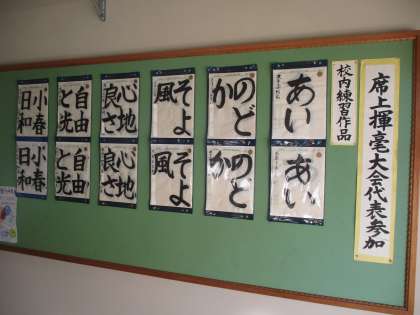 席上揮毫大会代表参加
校内練習作品
あい
のど
か
そよ
風
心地
良さ
自由
と光
小春
日和
あい
のど
か
そよ
風
心地
良さ
自由
と光
小春
日和